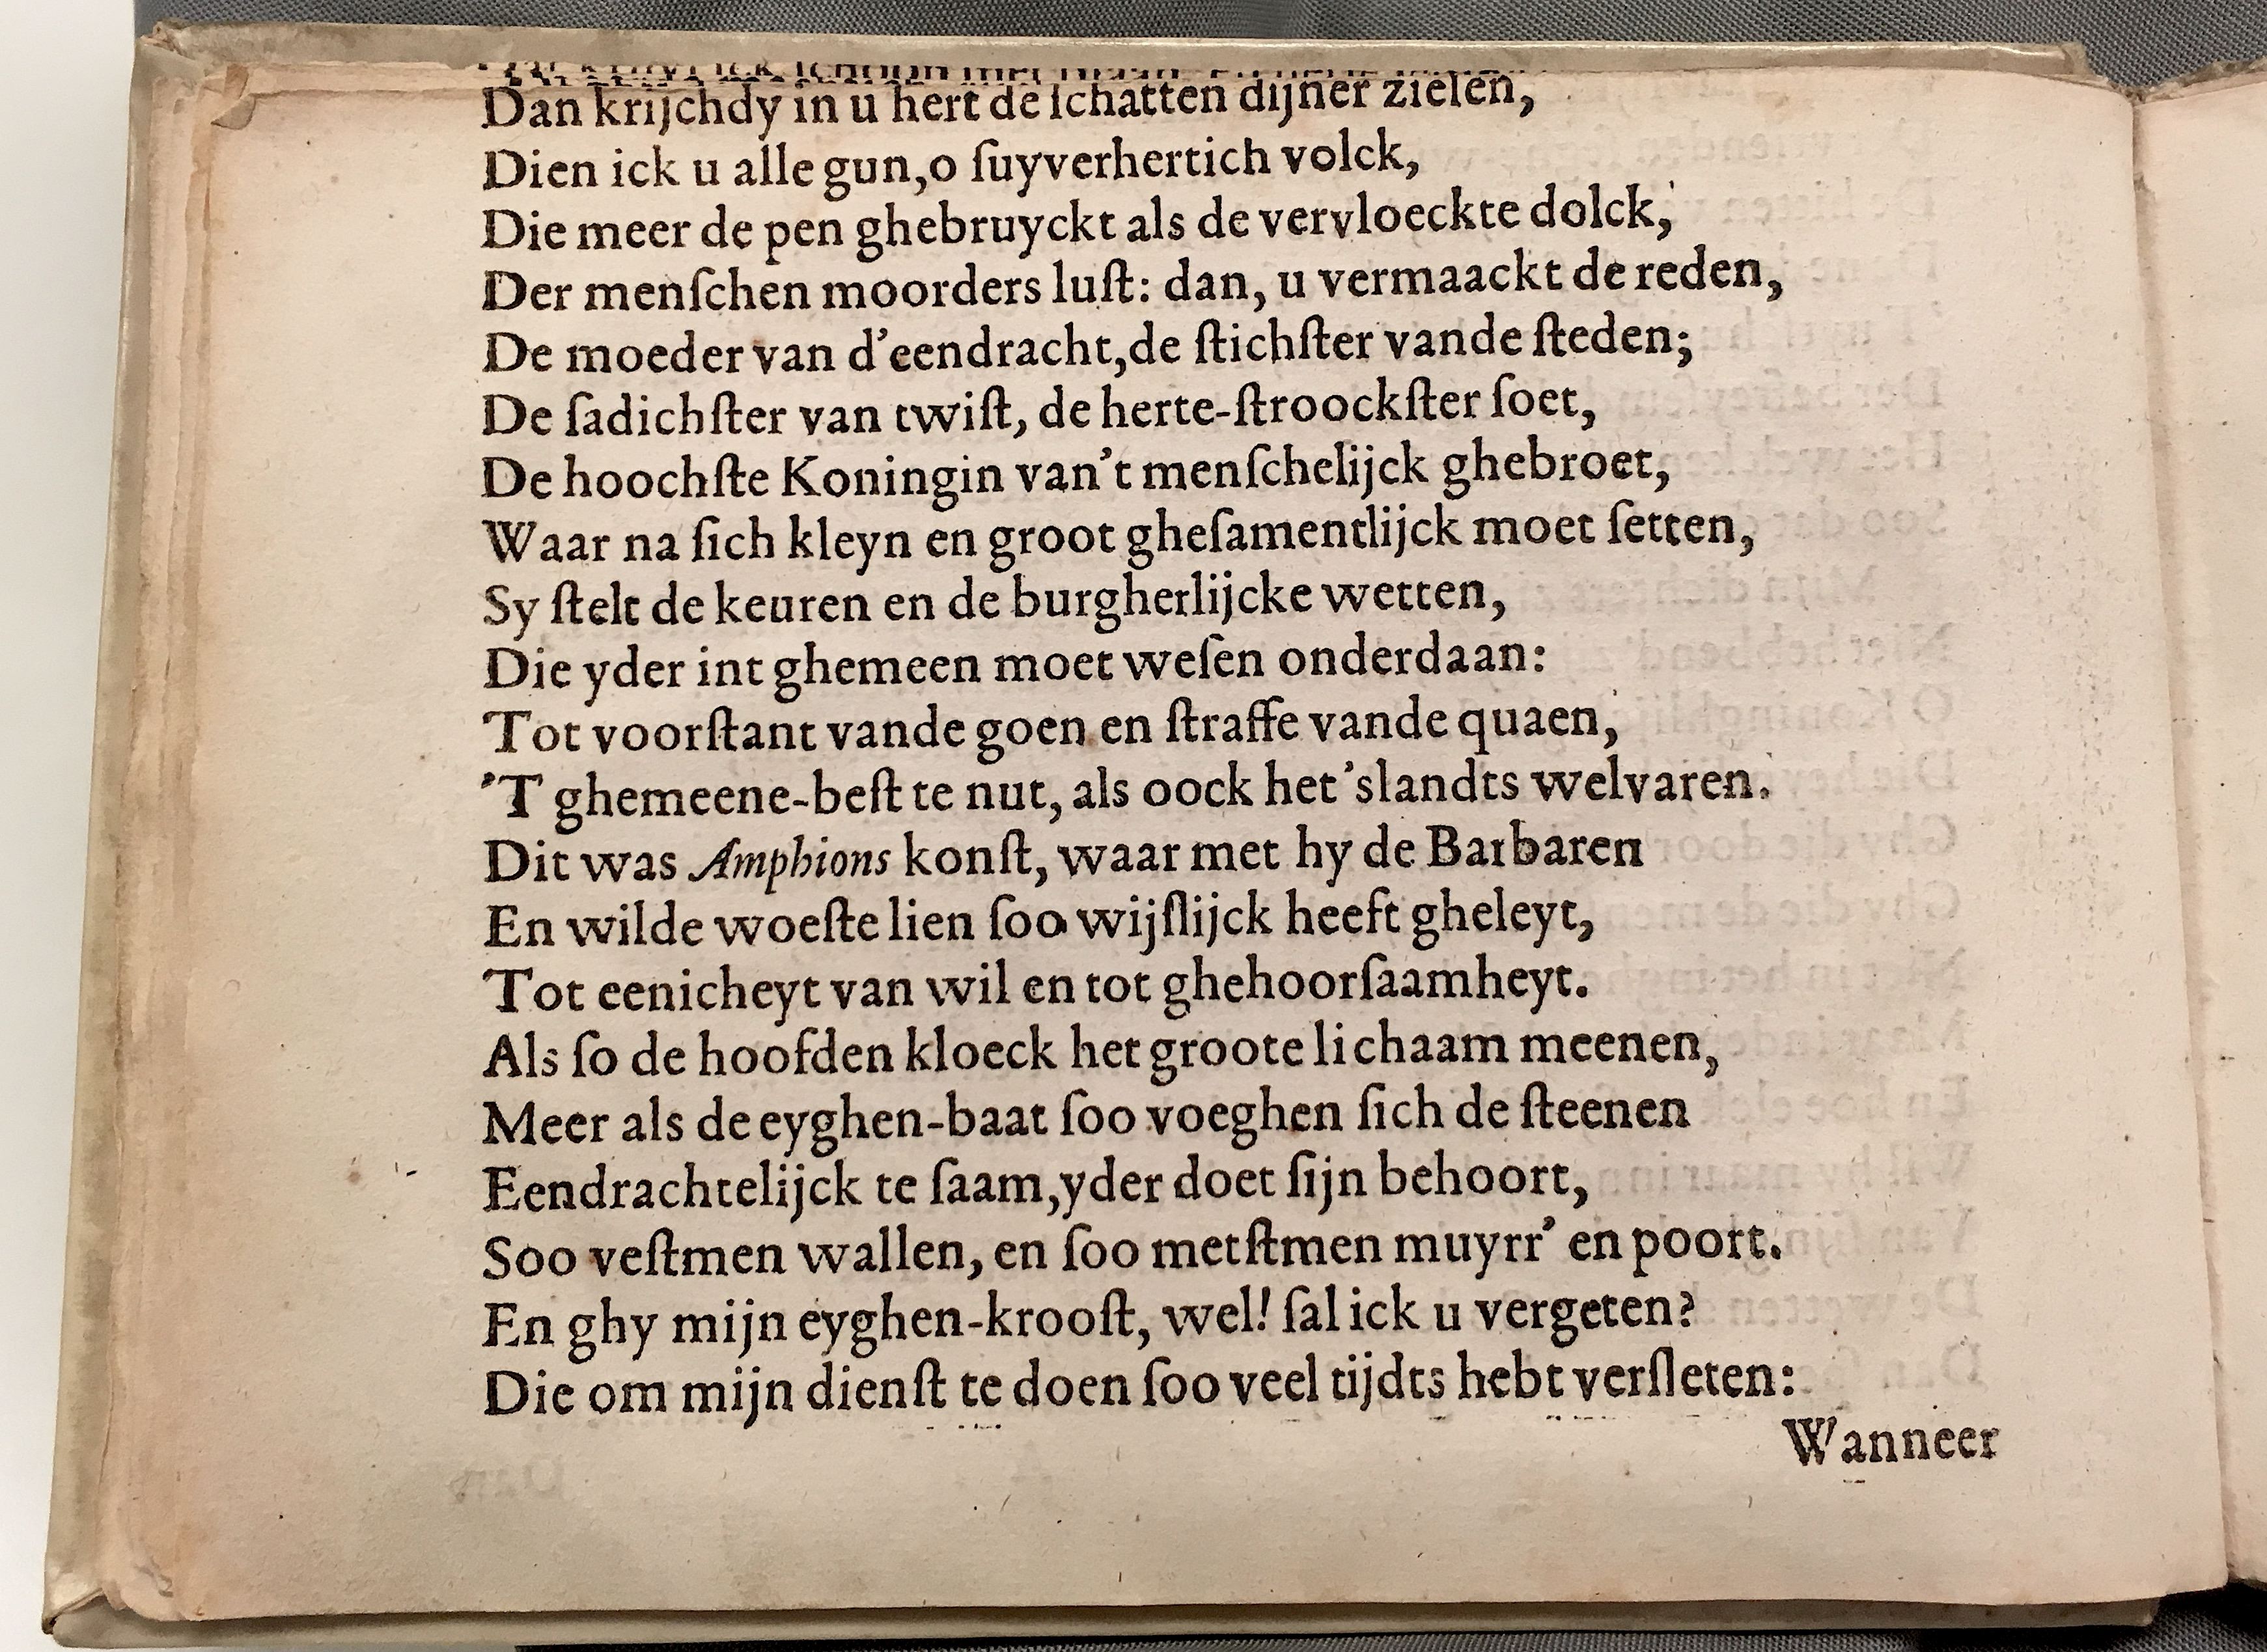 Dan krijchdy in u hert de ſchatten dijner zielen,
Dien ick u alle gun,o ſuyverhertich volck,
Die meer de pen ghebruyckt als de vervloeckte dolck,
Der menſchen moorders luſt: dan, u vermaackt de reden,
De moeder van d'eendracht,de ſtichſter vande ſteden;
De ſadichſter van twiſt, de herte-ſtroockſter ſoet,
De hoochſte Koningin van't menſchelijck ghebroet,
Waar na ſich kleyn en groot gheſamentlijck moet ſetten,
Sy ſtelt de keuren en de burgherlijcke wetten,
Die yder int ghemeen moet weſen onderdaan:
Tot voorſtant vande goen en ſtraffe vande quaen,
'T ghemeene-beſt te nut, als oock het 'slandts welvaren.
Dit was Amphions konſt, waar met hy de Barbaren
En wilde woeſte lien ſoo wijſlijck heeft gheleyt,
Tot eenicheyt van wil en tot ghehoorſaamheyt.
Als ſo de hoofden kloeck het groote lichaam meenen,
Meer als de eyghen-baat ſoo voeghen ſich de ſteenen
Eendrachtelijck te ſaam,yder doet ſijn behoort,
Soo veſtmen wallen, en ſoo metſtmen muyrr' en poort.
En ghy mijn eyghen-krooſt, wel! ſal ick u vergeten?
Die om mijn dienſt te doen ſoo veel tijdts hebt verſleten:
Wanneer